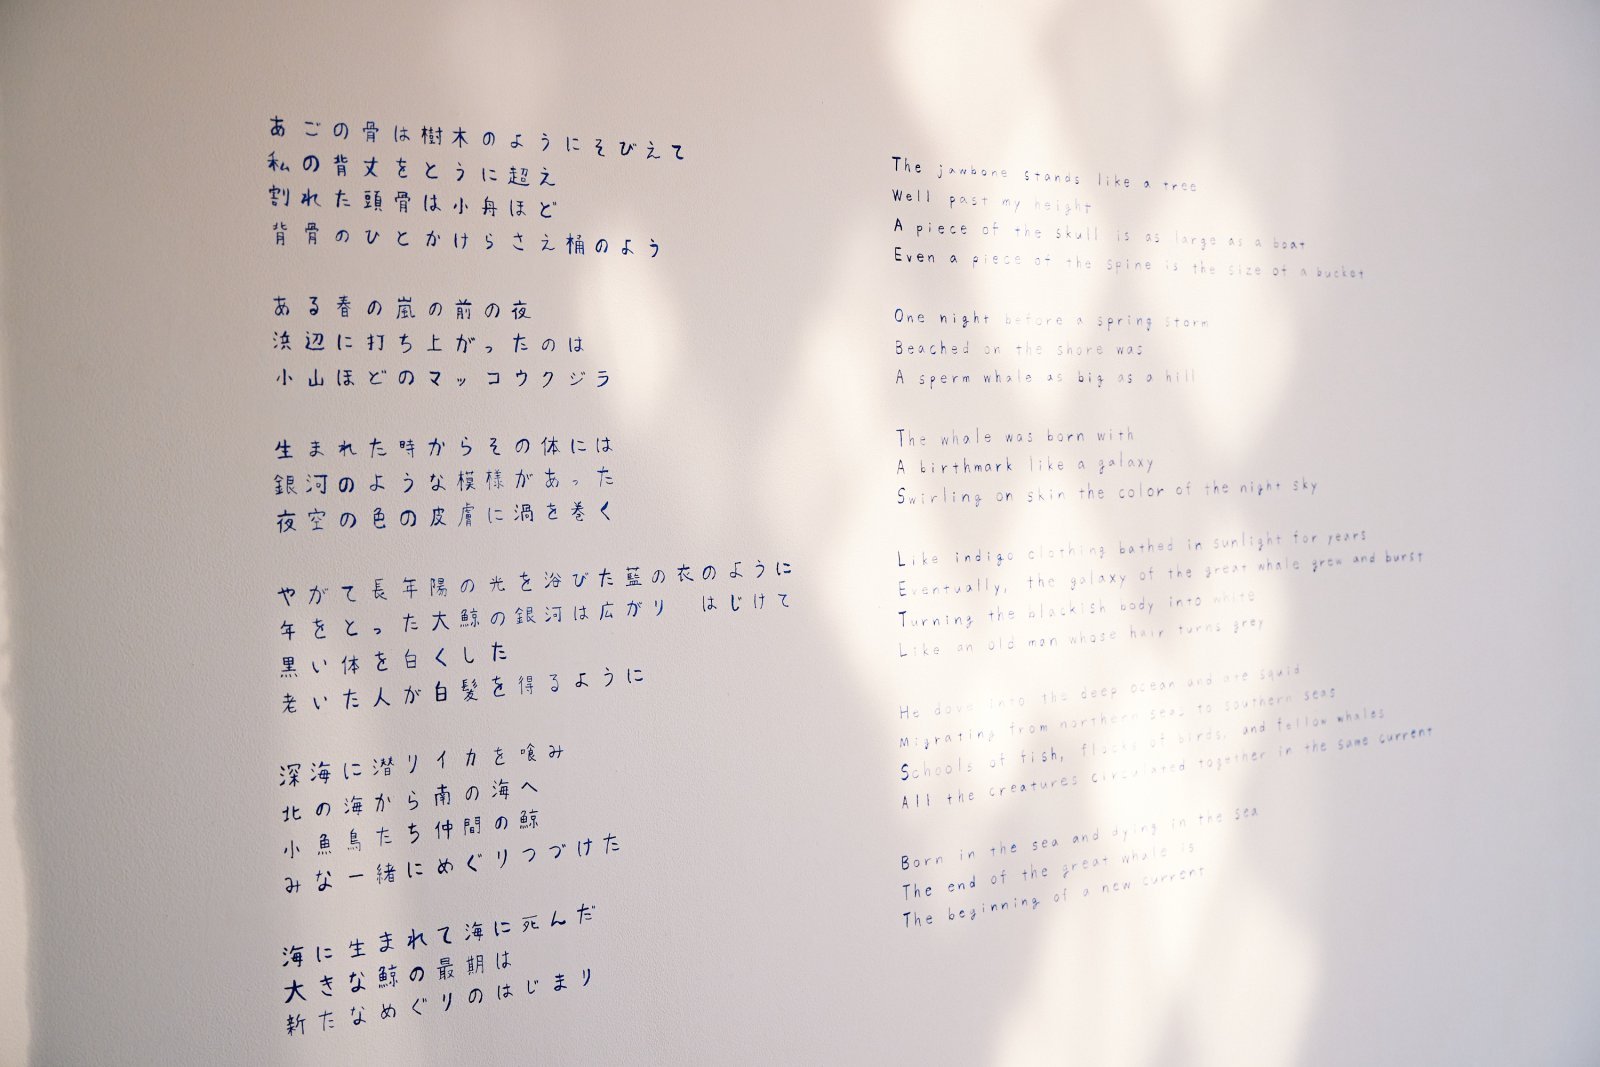 あごの骨は樹木のようにそびえて
私の背丈をとうに超え
割れた頭骨は小舟ほど
背骨のひとかけらさえ桶のよう
ある春の嵐の前の夜
浜辺に打ち上がったのは
小山ほどのマッコウクジラ
生まれた時からその体には
銀河のような模様があった
夜空の色の皮膚に渦を巻く
やがて長年陽の光を浴びた藍の衣のように
年をとった大鯨の銀河は広がり はじけて
黒い体を白くした
老いた人が白髪を得るように
深海に潜りイカを喰み
北の海から南の海へ
小魚鳥たち仲間の鯨
みな一緒にめぐりつづけた
海に生まれて海に死んだ
大きな鯨の最期は
新たなめぐりのはじまり
The jawbone stands like a tree
Well past my height
A piece of the skull is as large as a boat
Even a piece of the spine is the size of a bucket
One night before a spring storm
Beached on the shore was
A sperm whale as big as a hill
The whale was born with
A birthmark like a galaxy
Swirling on skin the color of the night sky
Like indigo clothing bathed in sunlight for years
Eventually, the galaxy of the great whale grew and burst
Turning the blackish body into white
Like an old man whose hair turns grey
He dove into the deep ocean and ate squid
Migrating from northern seas to southern seas
Schools of fish, flocks of birds, and fellow whales
All the creatures circulated together in the same current
Born in the sea and dying in the sea
The end of the great whale is
The beginning of a new current